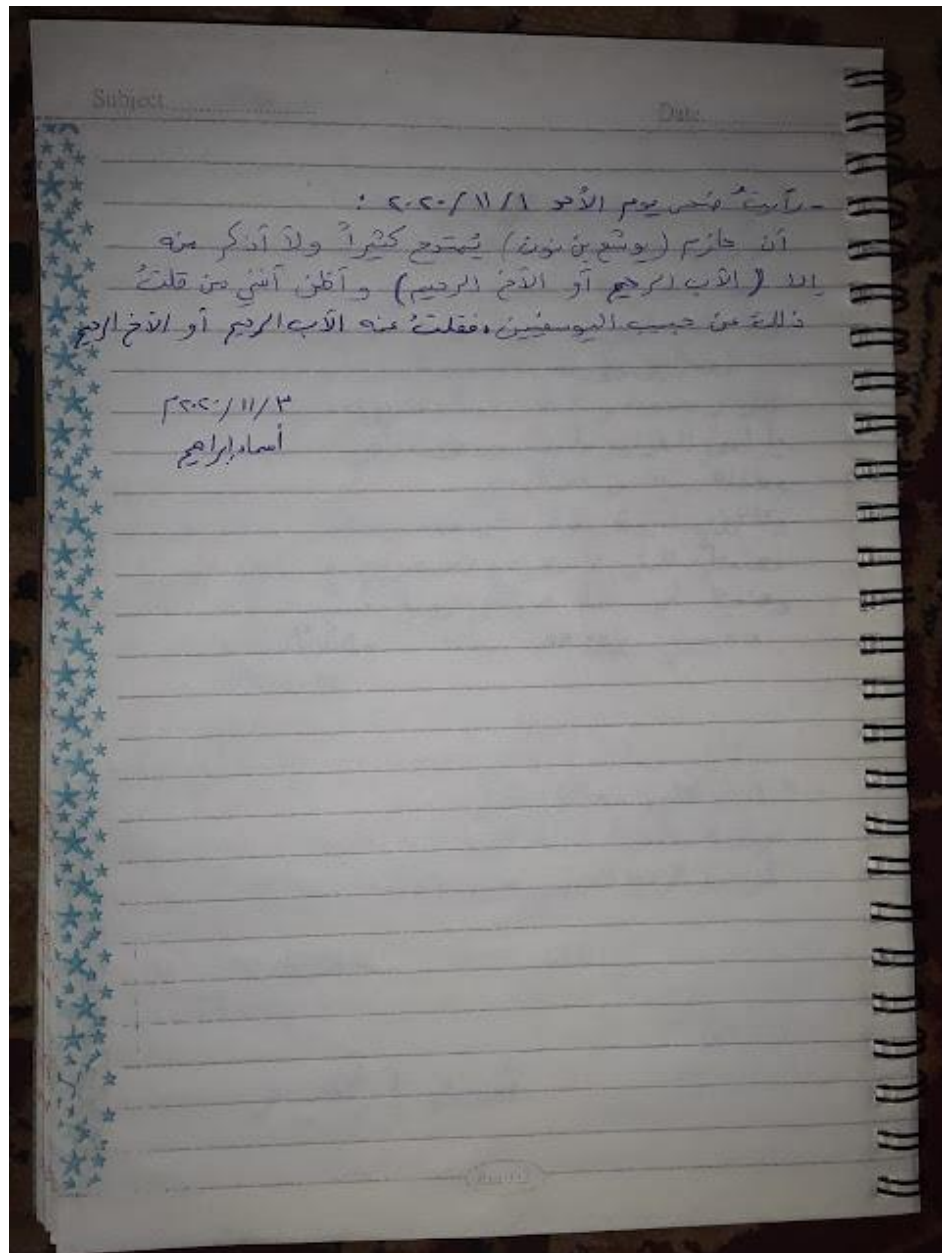 Subject
Date
- رأيتُ ضحى يوم الأحد ٢٠٢٠/١١/١ :
أن حازم (يوشع بن نون) يُمتدح كثيراً ولا أذكر منه
إلا (الأب الرحيم أو الأخ الرحيم) وأظن أنني من قلتُ
ذلك عن حبيب اليوسفيين، فقلتُ عنه الأب الرحيم أو الأخ الرحيم
٢٠٢٠/١١/٣م
أسماء إبراهيم